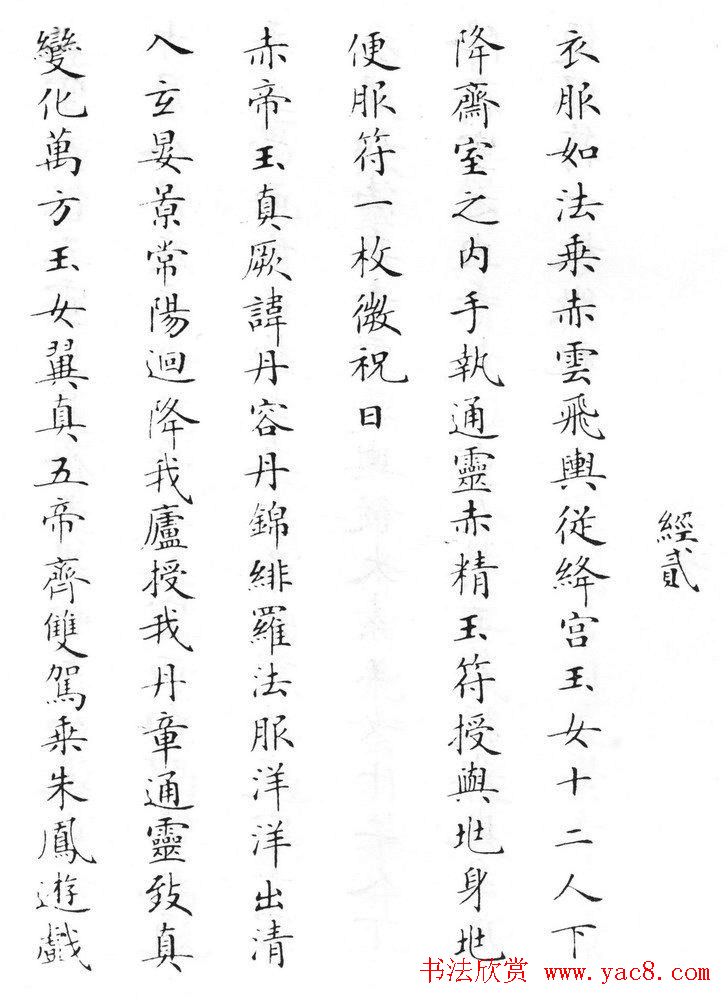 經貳
衣服如法乗赤雲飛輿從絳宫玉女十二人下
降齋室之内手執通靈赤精玉符授與兆身兆
便服符一枚微祝曰
赤帝玉真厥諱丹容丹錦緋羅法服洋洋出清
入玄晏景常陽迴降我廬授我丹章通靈致真
變化萬方玉女翼真五帝齊雙駕乗朱鳳遊戲
书法欣赏 www.yac8.com